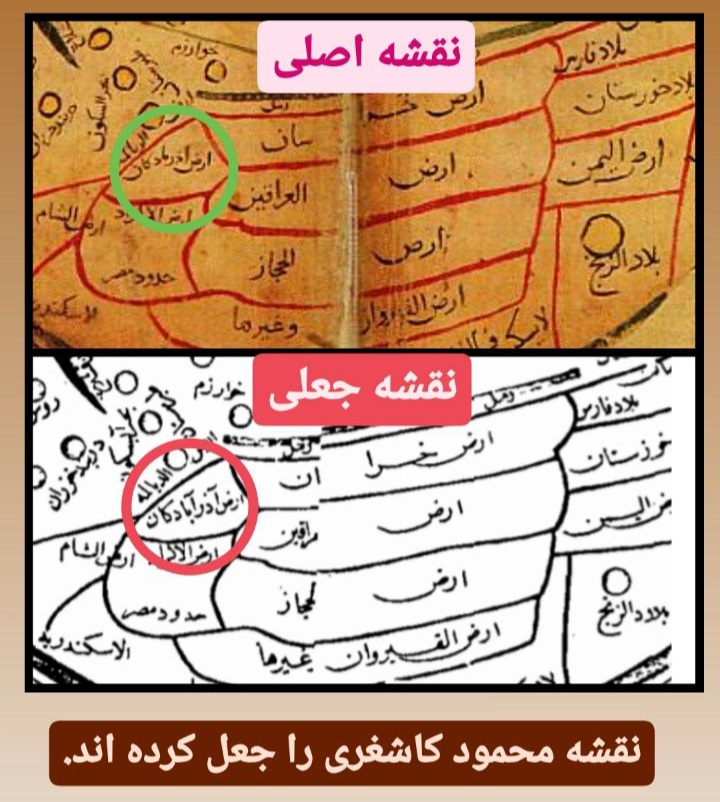 نقشه اصلی
خوارزم
بلاد فارس
ارض
بلاد خورستان
سان
ارض
ارض الیمن
ارض آدربادکان
العراقین
ارض الشام
ارض
بلاد الزنج
الحجاز
حدود مصر
ارض القیروان
وغیرها
نقشه جعلی
خوارزم
بلاد فارس
ارض خسرا
خوزستان
ان
ارض
ارض آذرآبادکان
ارض الشام
ارض الاکراد
ارض
حجاز
بلاد الزنج
حدود مصر
ارض القیروان
غیرها
الاسکندریه
نقشه محمود کاشغری را جعل کرده اند.